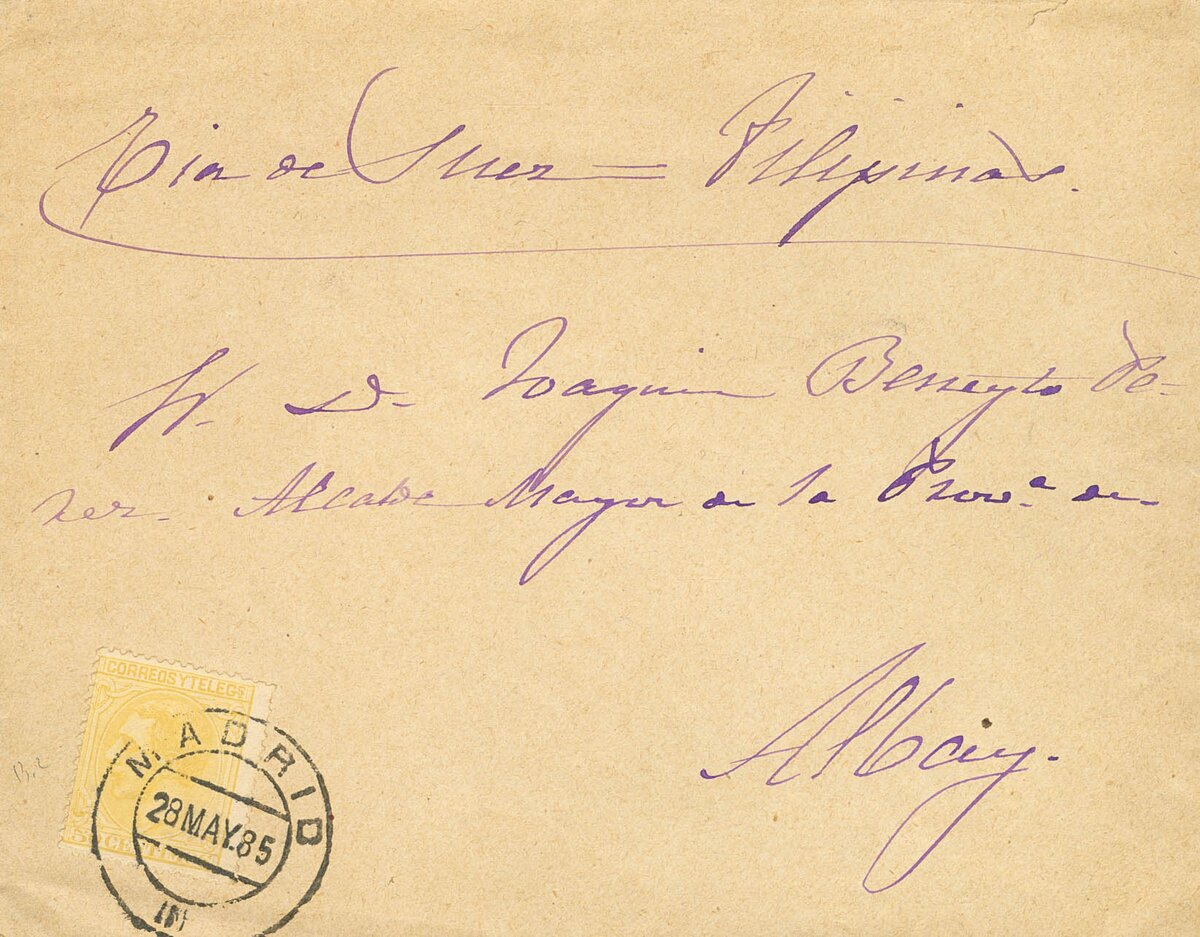 Via de Suez = Filipinas.
Sr. D. Joaquin Beneyto Pe-
rez. Alcalde Mayor de la Prov.ª de-
Albay.
CORREOS Y TELEGS
MADRID
28 MAY. 85